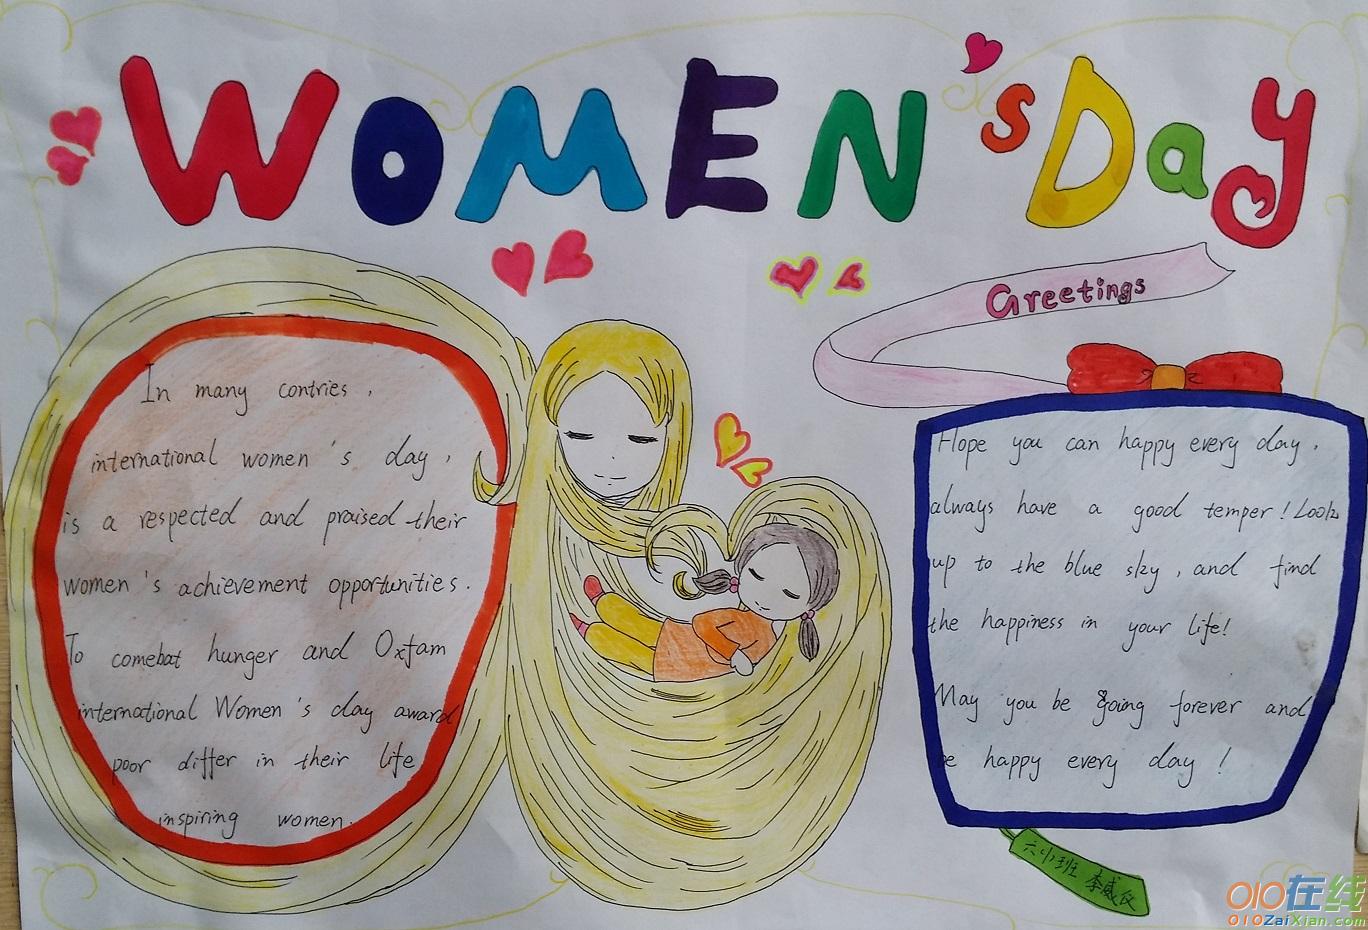 WOMEN'S Day
Greetings
In many contries,
international women's day,
is a respected and praised their
women's achievement opportunities.
To comebat hunger and Oxfam
international Women's day award
poor differ in their life
inspiring women.
Hope you can happy every day,
always have a good temper! Look
up to the blue sky, and find
the happiness in your life!
May you be going forever and
be happy every day!
班 李威仪
010在线
010ZaiXian.com